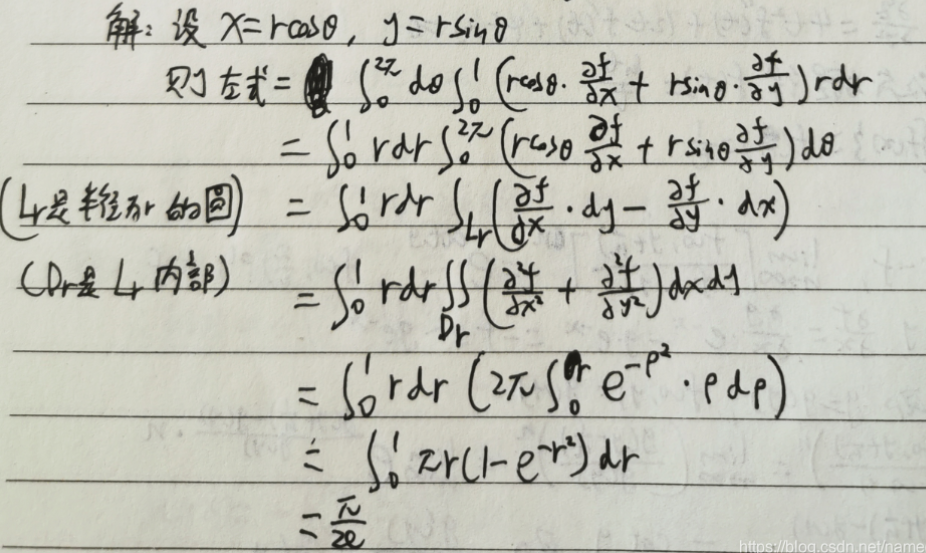 解: 设 x=rcosθ, y=rsinθ
则 左式= ∫₀^{2π} dθ ∫₀^1 (rcosθ·∂f/∂x + rsinθ·∂f/∂y) rdr
= ∫₀^1 rdr ∫₀^{2π} (rcosθ ∂f/∂x + rsinθ ∂f/∂y) dθ
(Lr是半径为r的圆) = ∫₀^1 rdr ∫_{Lr} (∂f/∂x·dy − ∂f/∂y·dx)
(Dr是Lr内部) = ∫₀^1 rdr ∬_{Dr} (∂²f/∂x² + ∂²f/∂y²) dxdy
= ∫₀^1 rdr (2π∫₀^r e^{-ρ²}·ρdρ)
= ∫₀^1 πr(1-e^{-r²}) dr
= π/2e
https://blog.csdn.net/name